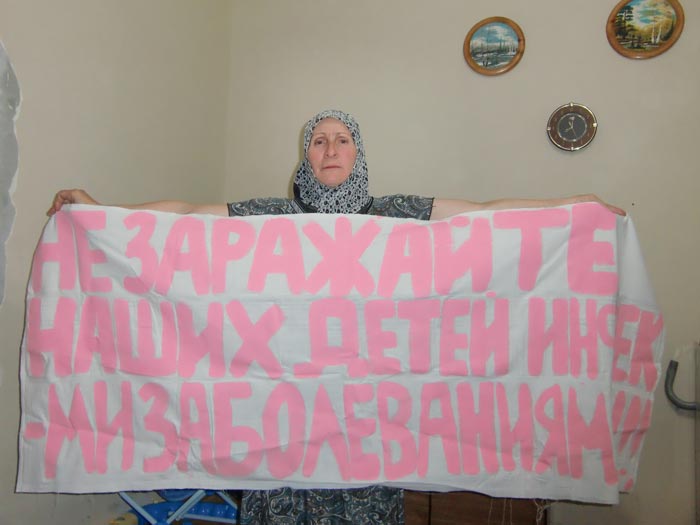 НЕ ЗАРАЖАЙТЕ
НАШИХ ДЕТЕЙ ИНФЕК
-МИ ЗАБОЛЕВАНИЯМ!!!